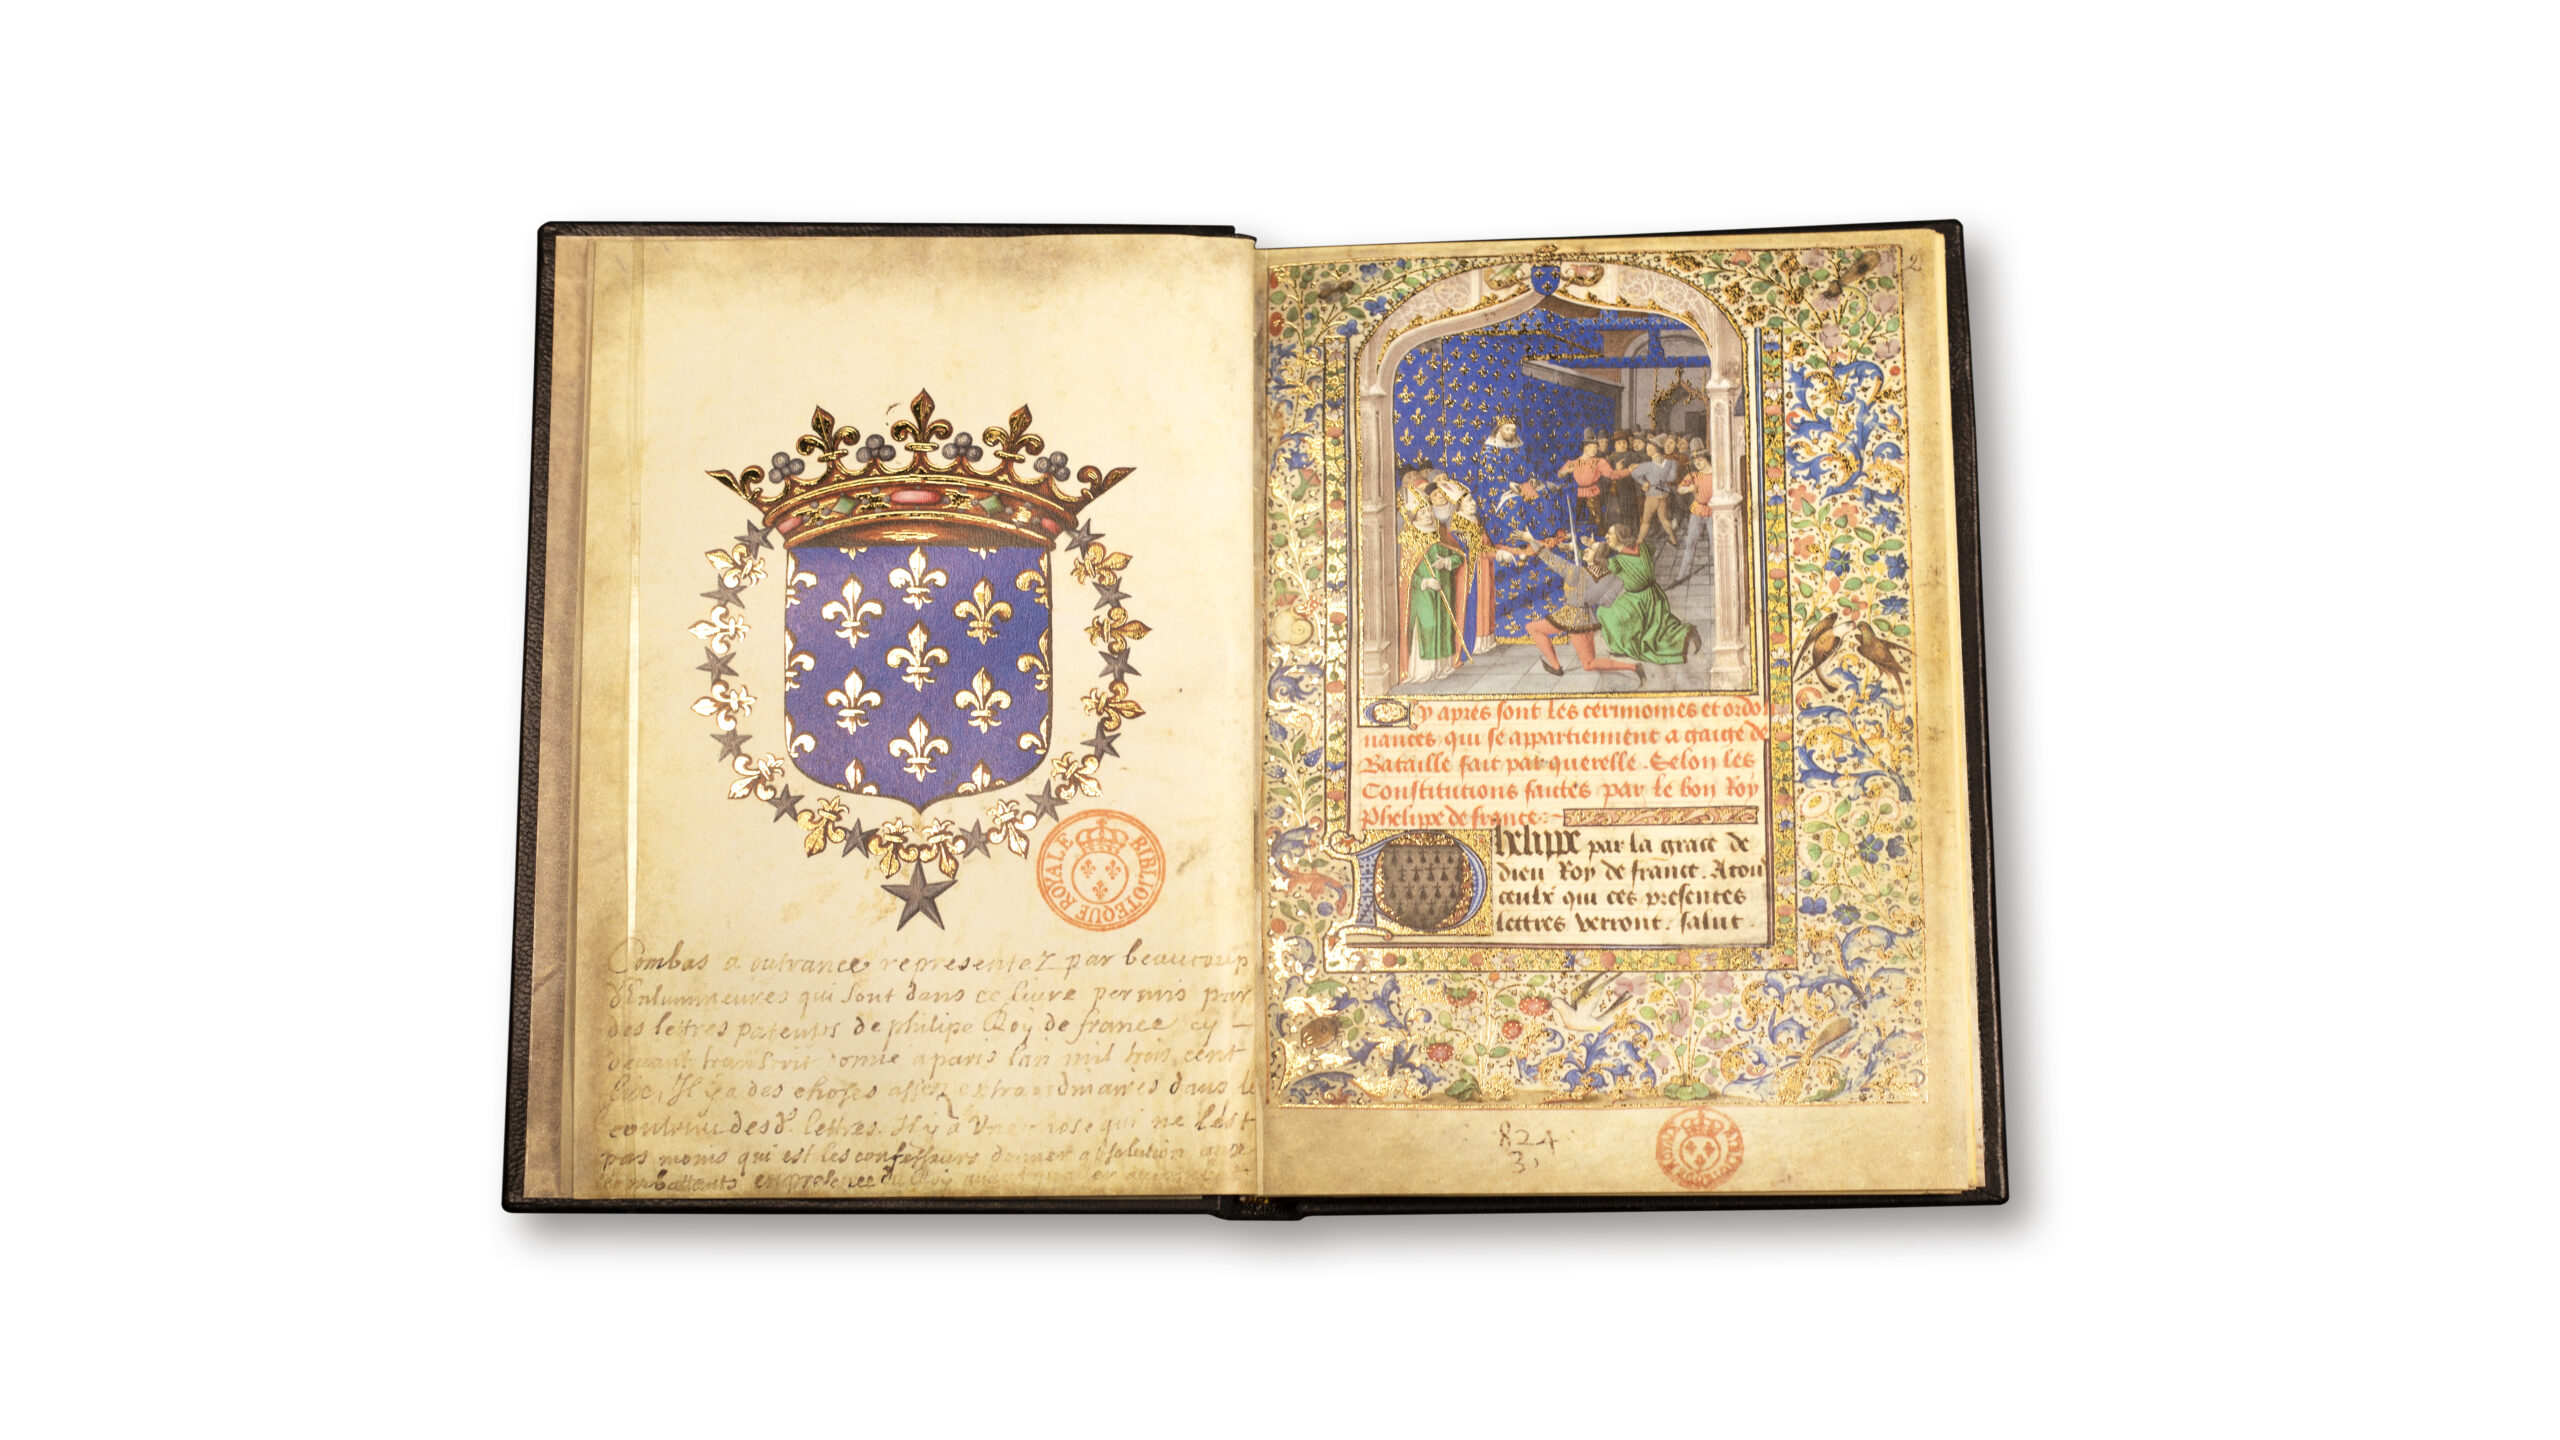 BIBLIOTEQUE ROYALE
Combas a outrance representez par beaucoup
d'Enlumineures qui sont dans ce livre permis par
des lettres patentes de philipe Roy de france cy-
devant transcrit a paris l'an mil trois cent
Il y a des choses assez extraordinaires dans le
contenu des d. lettres. Il y a Une chose qui ne l'est
pas moins qui est les confesseurs donner absolution aux
combattants en presence du Roy
2
Cy apres sont les cerimonies et ordo
nances qui se appartiennent a gaige de
Bataille fait par querelle. Selon les
Constitutions faictes par le bon Roy
Phelippe de france.
Phelippe par la grace de
dieu Roy de france. A tou
ceulx qui ces presentes
lettres verront. salut.
824
3.
BIBLIOTEQUE ROYALE